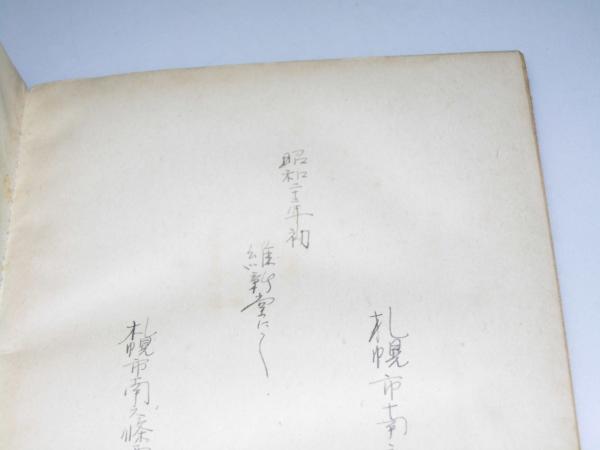 札幌市南
昭和二十年初
維新堂にて
札幌市南六條